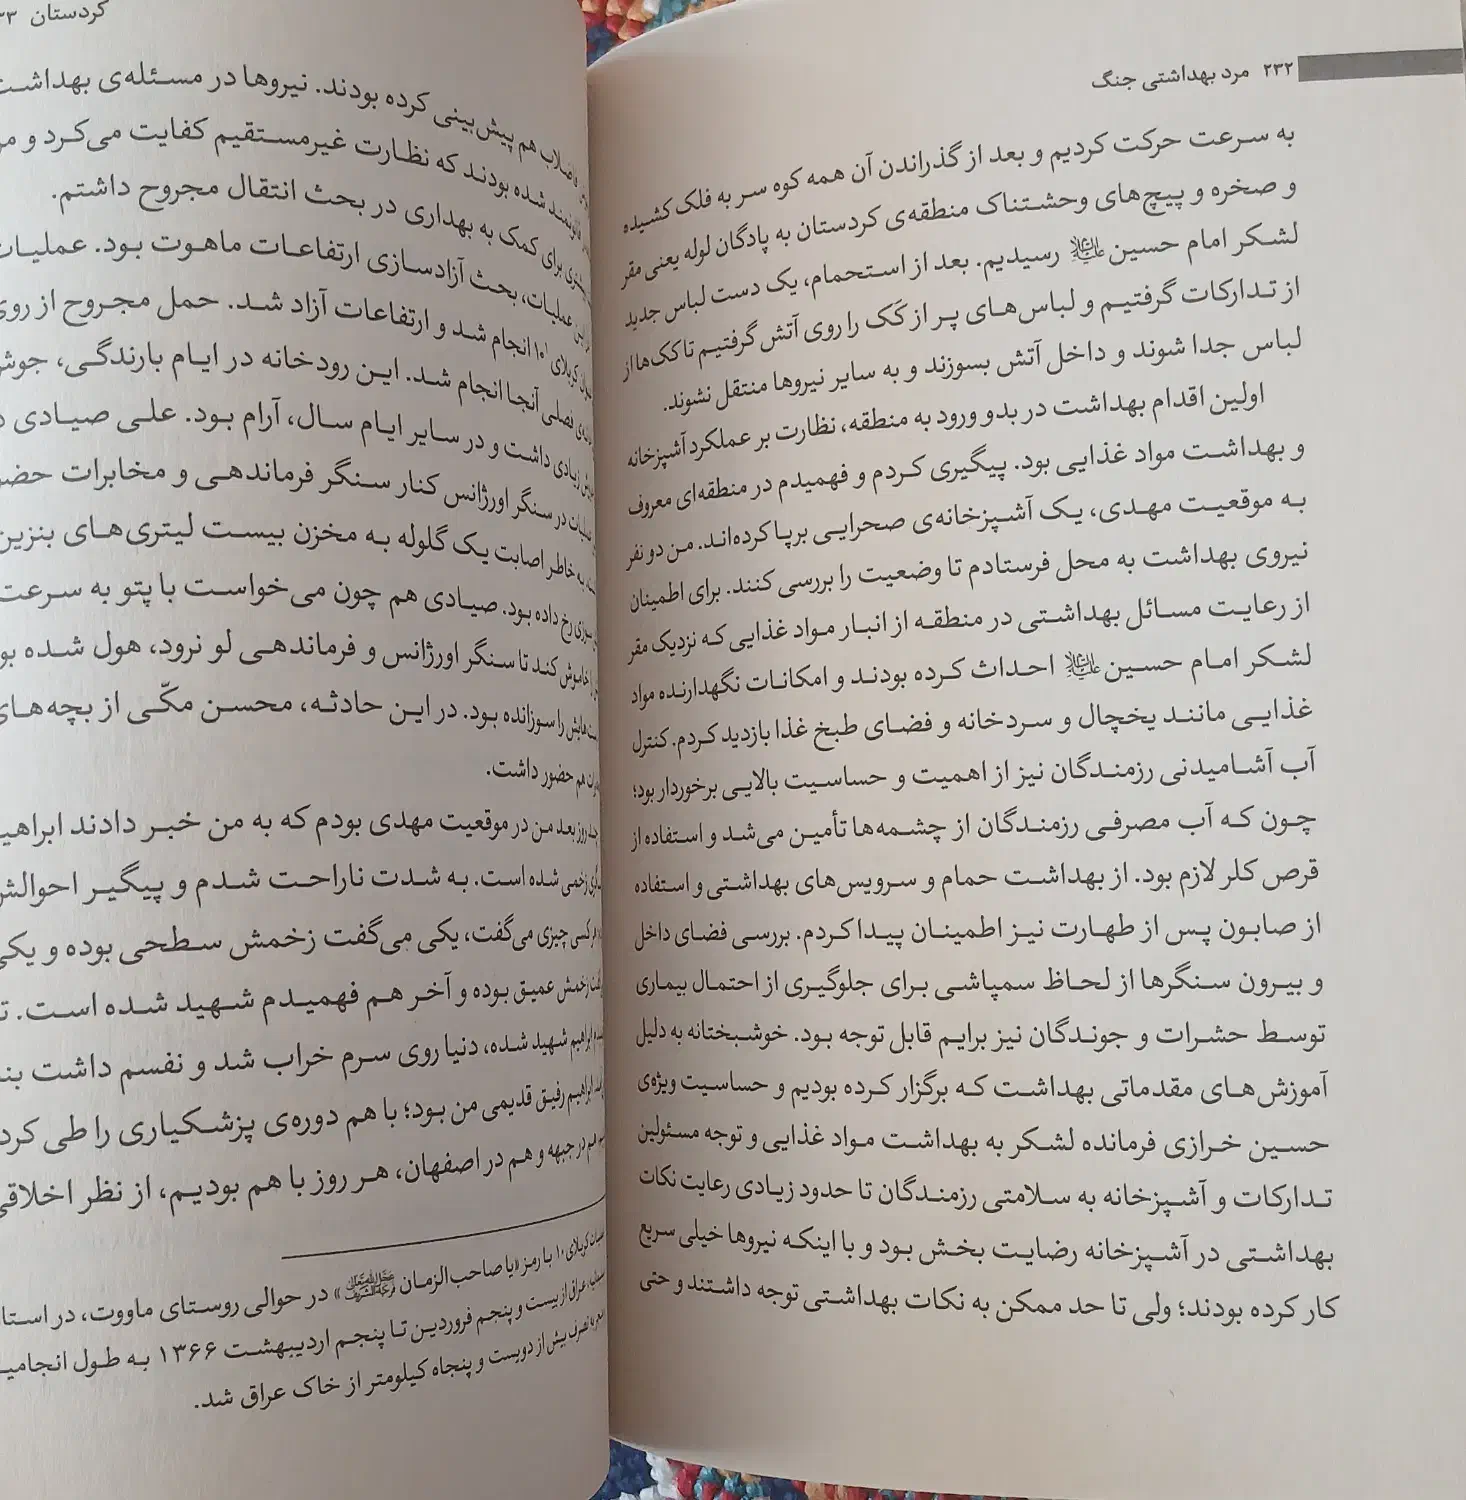 ۲۳۲ مرد بهداشتی جنگ
به سرعت حرکت کردیم و بعد از گذراندن آن همه کوه سر به فلک کشیده
و صخره و پیچ‌های وحشتناک منطقه‌ی کردستان به پادگان لوله یعنی مقر
لشکر امام حسین علیه‌السلام رسیدیم. بعد از استحمام، یک دست لباس جدید
از تدارکات گرفتیم و لباس‌های پر از کَک را روی آتش گرفتیم تا کک‌ها از
لباس جدا شوند و داخل آتش بسوزند و به سایر نیروها منتقل نشوند.
اولین اقدام بهداشت در بدو ورود به منطقه، نظارت بر عملکرد آشپزخانه
و بهداشت مواد غذایی بود. پیگیری کردم و فهمیدم در منطقه‌ای معروف
به موقعیت مهدی، یک آشپزخانه‌ی صحرایی برپا کرده‌اند. من دو نفر
نیروی بهداشت به محل فرستادم تا وضعیت را بررسی کنند. برای اطمینان
از رعایت مسائل بهداشتی در منطقه از انبار مواد غذایی که نزدیک مقر
لشکر امام حسین علیه‌السلام احداث کرده بودند و امکانات نگهدارنده مواد
غذایی مانند یخچال و سردخانه و فضای طبخ غذا بازدید کردم. کنترل
آب آشامیدنی رزمندگان نیز از اهمیت و حساسیت بالایی برخوردار بود؛
چون که آب مصرفی رزمندگان از چشمه‌ها تأمین می‌شد و استفاده از
قرص کلر لازم بود. از بهداشت حمام و سرویس‌های بهداشتی و استفاده
از صابون پس از طهارت نیز اطمینان پیدا کردم. بررسی فضای داخل
و بیرون سنگرها از لحاظ سمپاشی برای جلوگیری از احتمال بیماری
توسط حشرات و جوندگان نیز برایم قابل توجه بود. خوشبختانه به دلیل
آموزش‌های مقدماتی بهداشت که برگزار کرده بودیم و حساسیت ویژه‌ی
حسین خرازی فرمانده لشکر به بهداشت مواد غذایی و توجه مسئولین
تدارکات و آشپزخانه به سلامتی رزمندگان تا حدود زیادی رعایت نکات
بهداشتی در آشپزخانه رضایت بخش بود و با اینکه نیروها خیلی سریع
کار کرده بودند؛ ولی تا حد ممکن به نکات بهداشتی توجه داشتند و حتی
کردستان
فاضلاب هم پیش‌بینی کرده بودند. نیروها در مسئله‌ی بهداشت
شده بودند که نظارت غیرمستقیم کفایت می‌کرد و
برای کمک به بهداری در بحث انتقال مجروح داشتم.
عملیات، بحث آزادسازی ارتفاعات ماهوت بود. عملیات
کربلای ۱۰¹ انجام شد و ارتفاعات آزاد شد. حمل مجروح از روی
فصلی آنجا انجام شد. این رودخانه در ایام بارندگی، جوش
زیادی داشت و در سایر ایام سال، آرام بود. علی صیادی
در سنگر اورژانس کنار سنگر فرماندهی و مخابرات
به خاطر اصابت یک گلوله به مخزن بیست لیتری‌های بنزین
رخ داده بود. صیادی هم چون می‌خواست با پتو به سرعت
خاموش کند تا سنگر اورژانس و فرماندهی لو نرود، هول شده
را سوزانده بود. در این حادثه، محسن مکّی از بچه‌های
هم حضور داشت.
روز بعد من در موقعیت مهدی بودم که به من خبر دادند
زخمی شده است. به شدت ناراحت شدم و پیگیر احوالش
کسی چیزی می‌گفت، یکی می‌گفت زخمش سطحی بوده و یکی
زخمش عمیق بوده و آخر هم فهمیدم شهید شده است.
ابراهیم شهید شده، دنیا روی سرم خراب شد و نفسم داشت
ابراهیم رفیق قدیمی من بود؛ با هم دوره‌ی پزشکیاری را طی
هم در جبهه و هم در اصفهان، هر روز با هم بودیم، از نظر اخلاقی
کربلای ۱۰ با رمز «یا صاحب‌الزمان» در حوالی روستای ماووت، در
عراق از بیست و پنجم فروردین تا پنجم اردیبهشت ۱۳۶۶ به طول
تصرف بیش از دویست و پنجاه کیلومتر از خاک عراق شد.